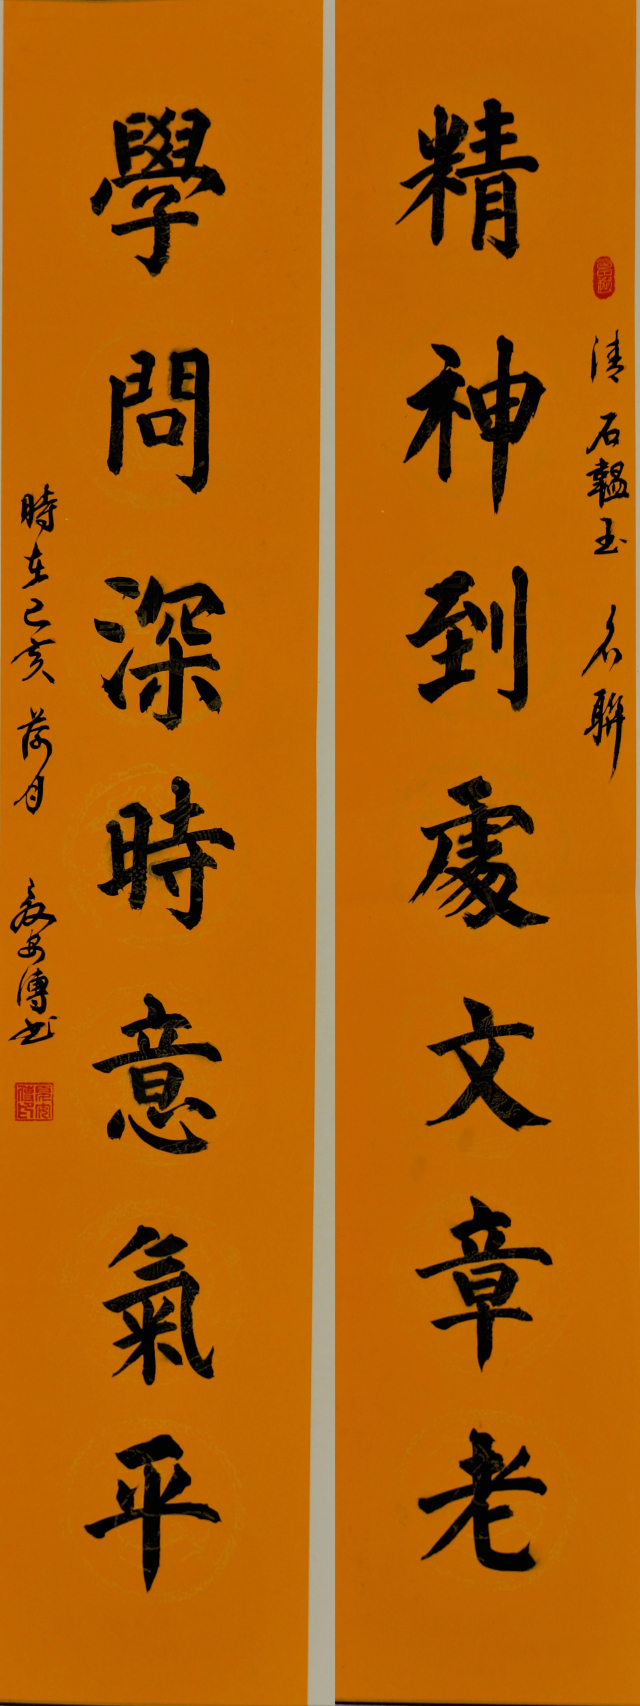 精神到處文章老
清石韞玉名聯
學問深時意氣平
時在己亥荷月
安傳書